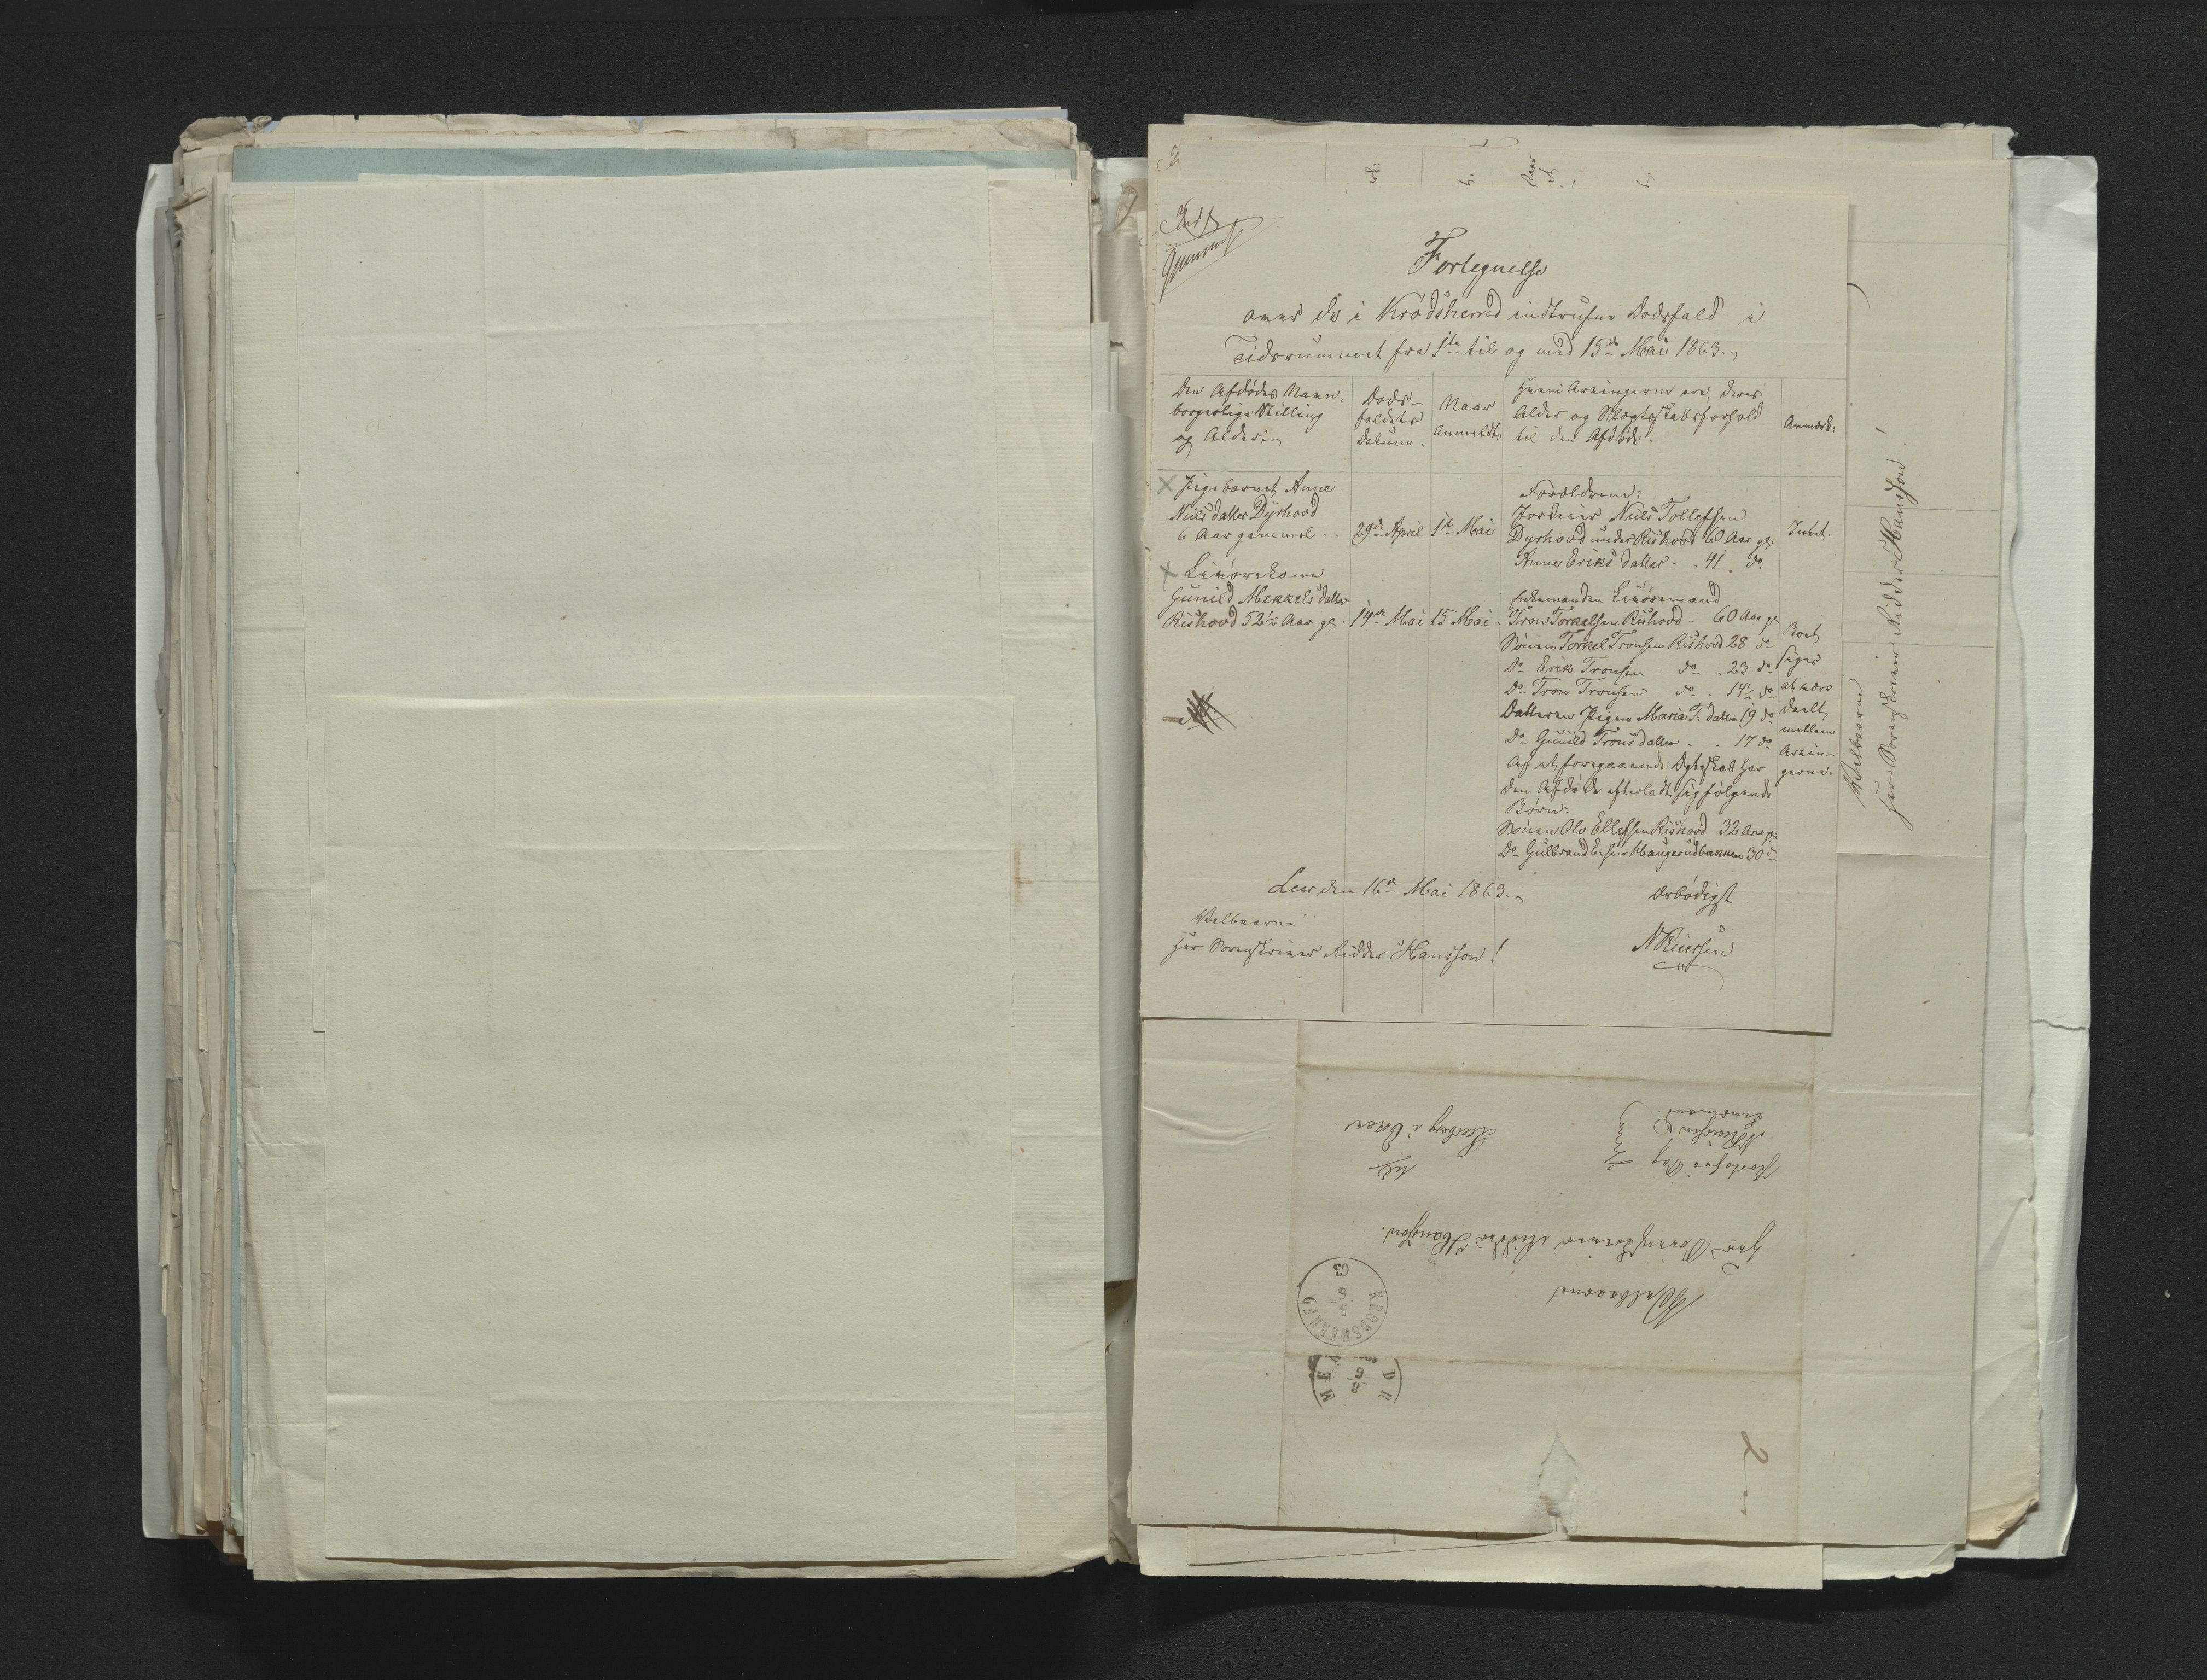 Fortegnelse
over de i Krødsherred indtrufne Dødsfald i
Tidsrummet fra 1ste til og med 15de Mai 1863.
Den Afdødes Navn,
borgerlige Stilling
og Alder.
Døds-
faldets
Datum.
Naar
Anmeldt.
Hvem Arvingerne ere, deres
Alder og Slægtskabsforhold
til den Afdøde.
Anmærk:
Pigebarnet Anne
Niels datter Dyrhovd
6 Aar gammel
29de April
1ste Mai
Forældrene:
Niels Tollefsen
Dyrhovd under Rishovd 60 Aar gl.
Anne Eriks datter 41 do
Intet.
Gunild Mekkels datter
Rishovd 52½ Aar gl.
14de Mai
15 Mai
Enkemanden
Tron Torkelsen Rishovd - 60 Aar gl
Sønnen Torkel Tronsen Rishovd 28 do
Do Erik Tronsen do 23 do
Do Tron Tronsen do 14½ do
Datteren Pigen Maria T. datter 19 do
Do Gunild Trons datter 17 do
Af et foregaaende Ægteskab har
den Afdøde efterladt sig følgende
Børn:
Sønnen Ole Ellefsen Rishovd 32 Aar gl.
Do Gulbrand E.sen Haugerudbakken 30 do
Boet
siges
at være
deelt
mellem
Arvin-
gerne.
Leer den 16de Mai 1863.
Ærbødigst
Velbaarne
Herr Sorenskriver Ridder Hansson!
N Ruersen
Velbaarne
Herr Sorenskriver Ridder Hansson!
Velbaarne
Herr Sorenskriver Ridder Hansson.
til
KRØDSHERRED